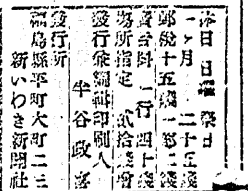 休日 日曜 祭日
一ケ月 二十五錢
郵税十五錢一部二錢
廣告料 一行 四十錢
場所指定 貳拾錢增
發行兼編輯印刷人
半谷政
發行所
福島縣平町大町二三
新いわき新聞社